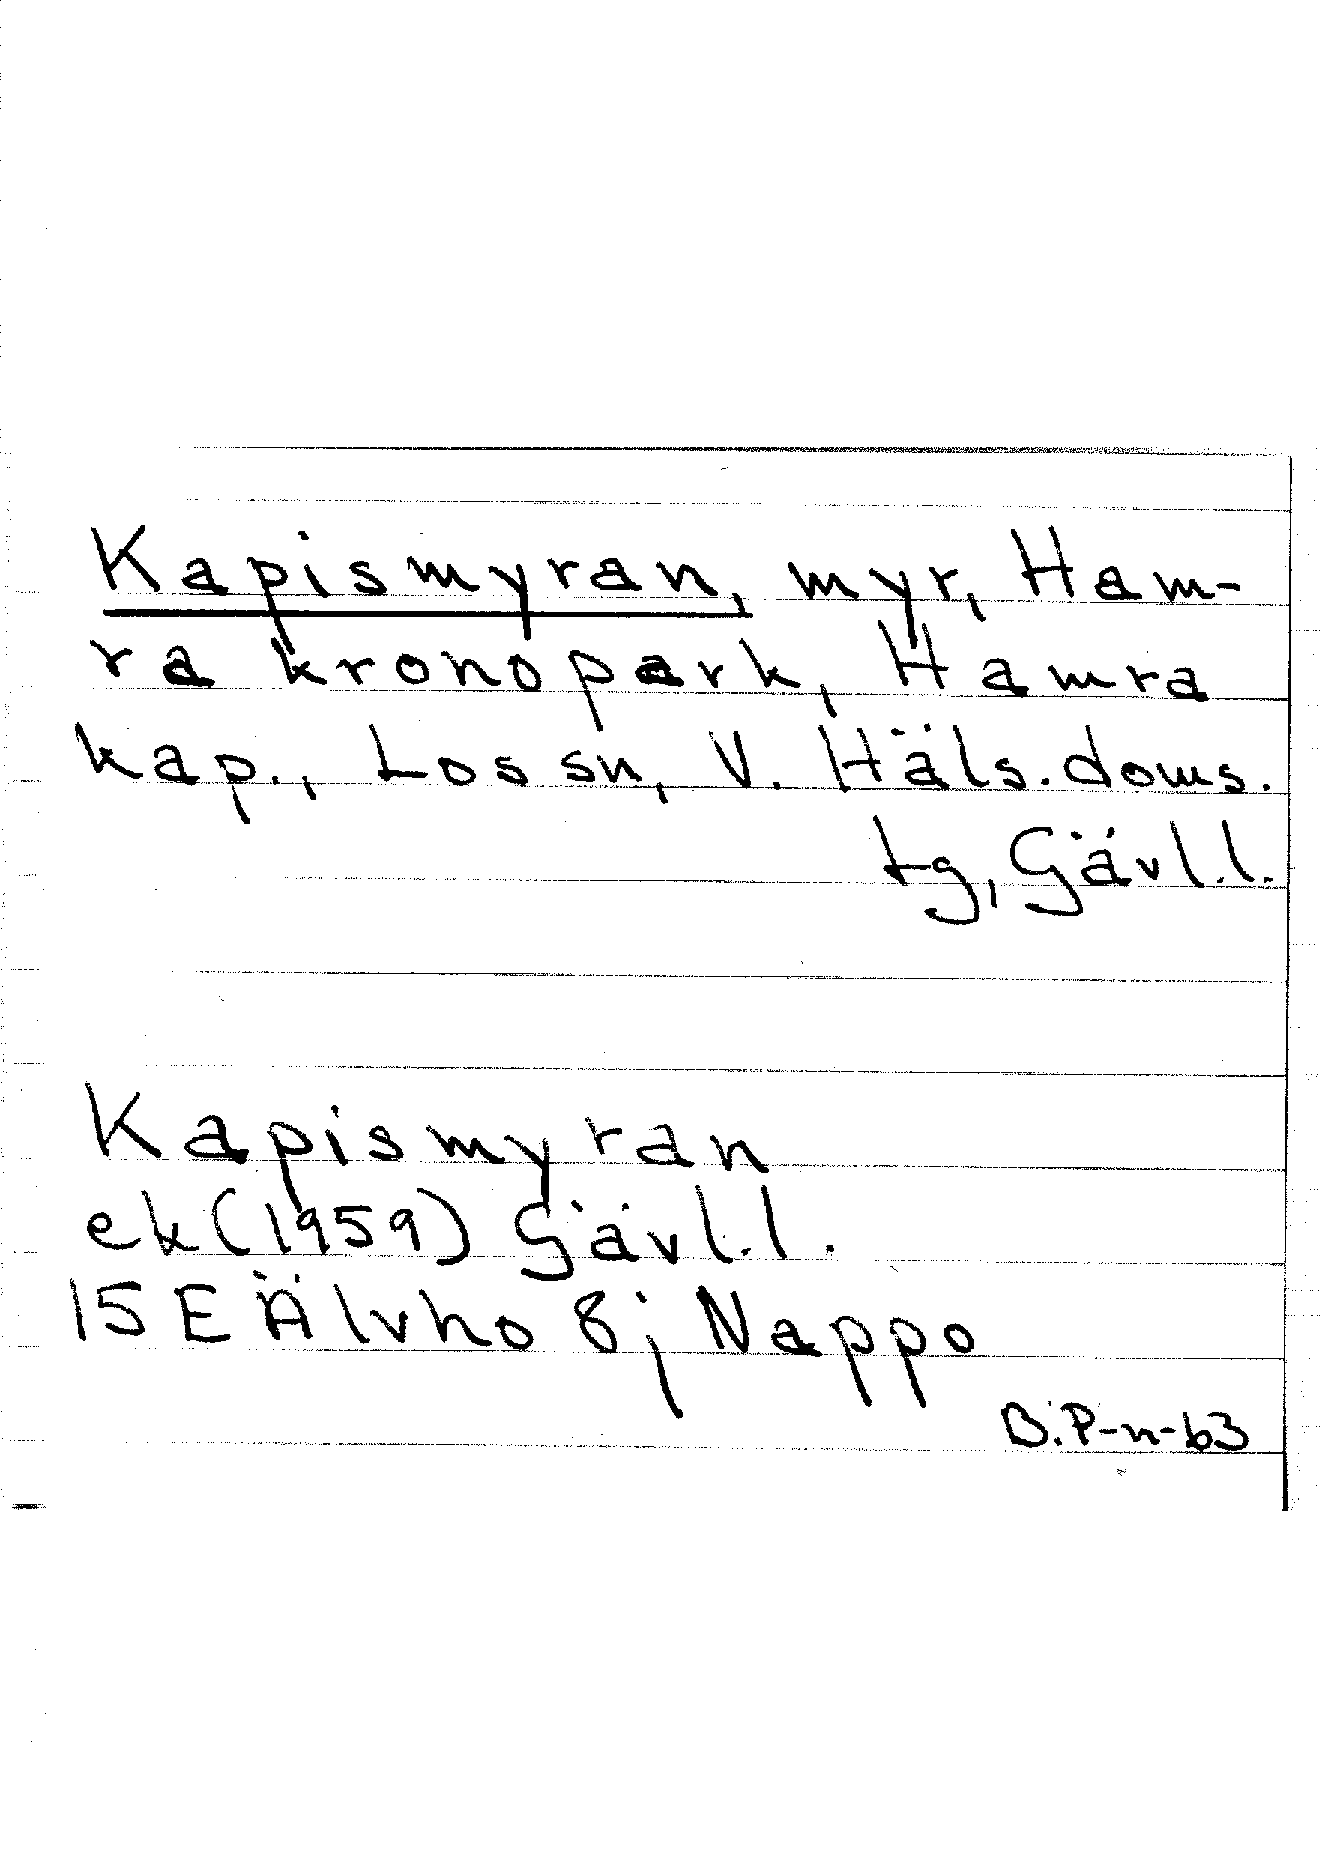 Kapismyran, myr, Ham-
ra kronopark, Hamra
kap., Los sn, V. Häls. doms.
tg, Gävl. l.
Kapismyran
ek (1959) Gävl. l.
15 E Älvho 8j Nappo
B. P-n-63